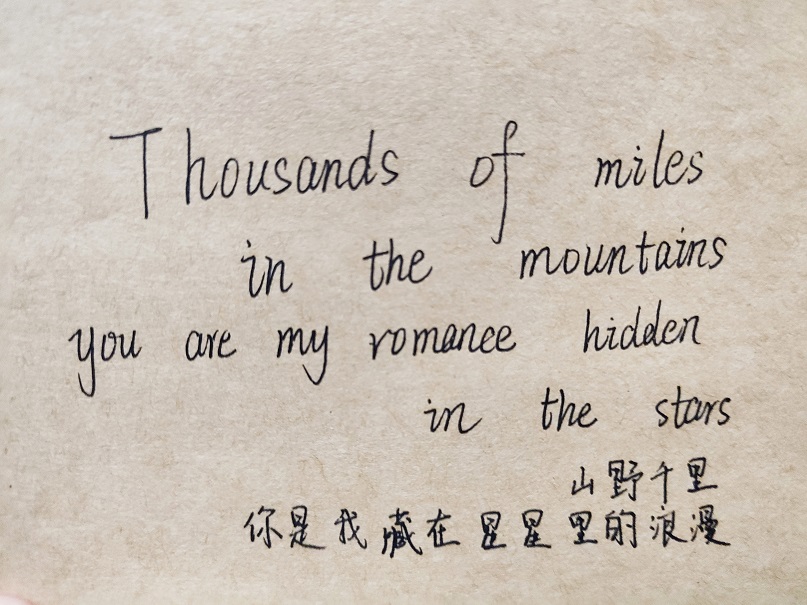 Thousands of miles
in the mountains
you are my romance hidden
in the stars
山野千里
你是我藏在星星里的浪漫